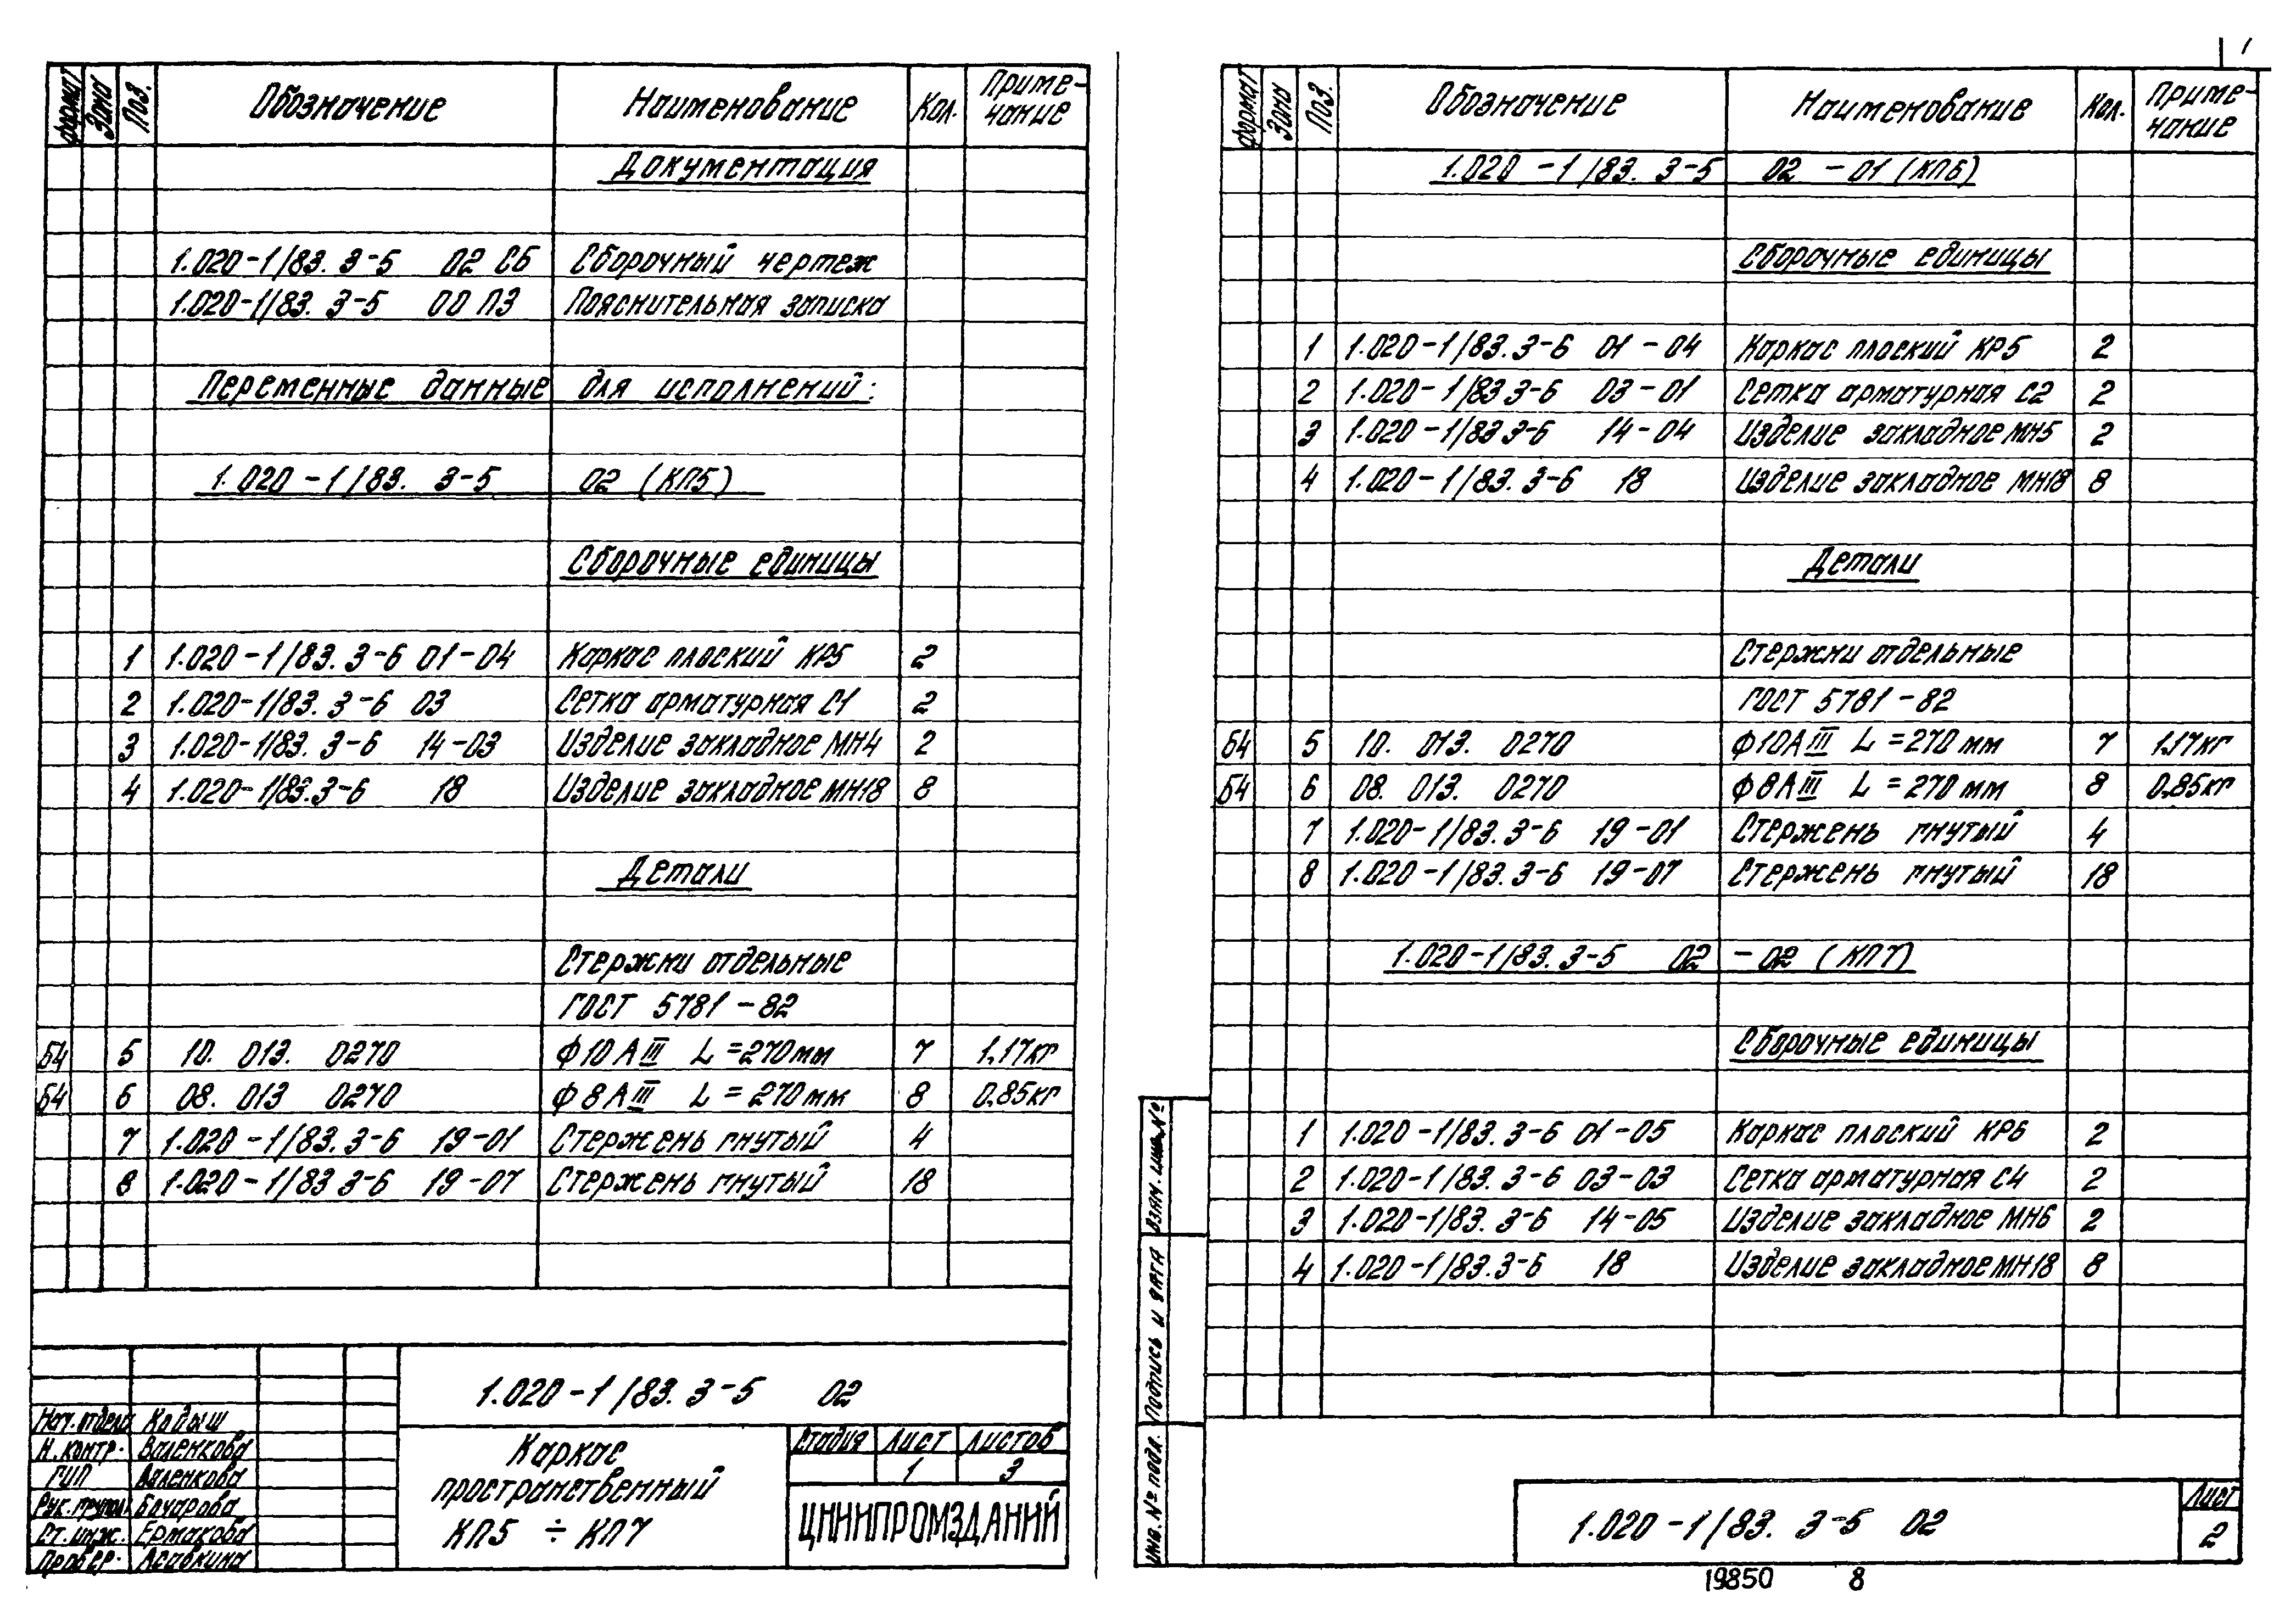 Формат Зона Поз. Обозначение Наименование Кол. Приме-чание
Документация
1.020-1/83. 3-5 02 СБ Сборочный чертеж
1.020-1/83. 3-5 00 ПЗ Пояснительная записка
Переменные данные для исполнений:
1.020-1/83. 3-5 02 (КП5)
Сборочные единицы
1 1.020-1/83. 3-6 01-04 Каркас плоский КР5 2
2 1.020-1/83. 3-6 03 Сетка арматурная С1 2
3 1.020-1/83. 3-6 14-03 Изделие закладное МН4 2
4 1.020-1/83. 3-6 18 Изделие закладное МН18 8
Детали
Стержни отдельные
ГОСТ 5781-82
Б4 5 10. 013. 0270 Ф10АIII L=270мм 7 1,17кг
Б4 6 08. 013 0270 Ф8АIII L=270мм 8 0,85кг
7 1.020-1/83. 3-6 19-01 Стержень гнутый 4
8 1.020-1/83 3-6 19-07 Стержень гнутый 18
1.020-1/83. 3-5 02
Нач. отдела Кодыш
Н. контр. Валенкова
ГИП Валенкова
Рук. группы Бочарова
Ст. инж. Ермакова
Провер. Асавкина
Каркас
пространственный
КП5 ÷ КП7
Стадия Лист Листов
1 3
ЦНИИПРОМЗДАНИЙ
1
Формат Зона Поз. Обозначение Наименование Кол. Приме-чание
1.020-1/83. 3-5 02-01 (КП6)
Сборочные единицы
1 1.020-1/83. 3-6 01-04 Каркас плоский КР5 2
2 1.020-1/83 3-6 03-01 Сетка арматурная С2 2
3 1.020-1/83 3-6 14-04 Изделие закладное МН5 2
4 1.020-1/83. 3-6 18 Изделие закладное МН18 8
Детали
Стержни отдельные
ГОСТ 5781-82
Б4 5 10. 013. 0270 Ф10АIII L=270мм 7 1,17кг
Б4 6 08. 013. 0270 Ф8АIII L=270мм 8 0,85кг
7 1.020-1/83. 3-6 19-01 Стержень гнутый 4
8 1.020-1/83. 3-6 19-07 Стержень гнутый 18
1.020-1/83. 3-5 02-02 (КП7)
Сборочные единицы
1 1.020-1/83. 3-6 01-05 Каркас плоский КР6 2
2 1.020-1/83. 3-6 03-03 Сетка арматурная С4 2
3 1.020-1/83. 3-6 14-05 Изделие закладное МН6 2
4 1.020-1/83. 3-6 18 Изделие закладное МН18 8
Взам. инв. №
Подпись и дата
Инв. № подл.
1.020-1/83. 3-5 02
Лист
2
19850 8